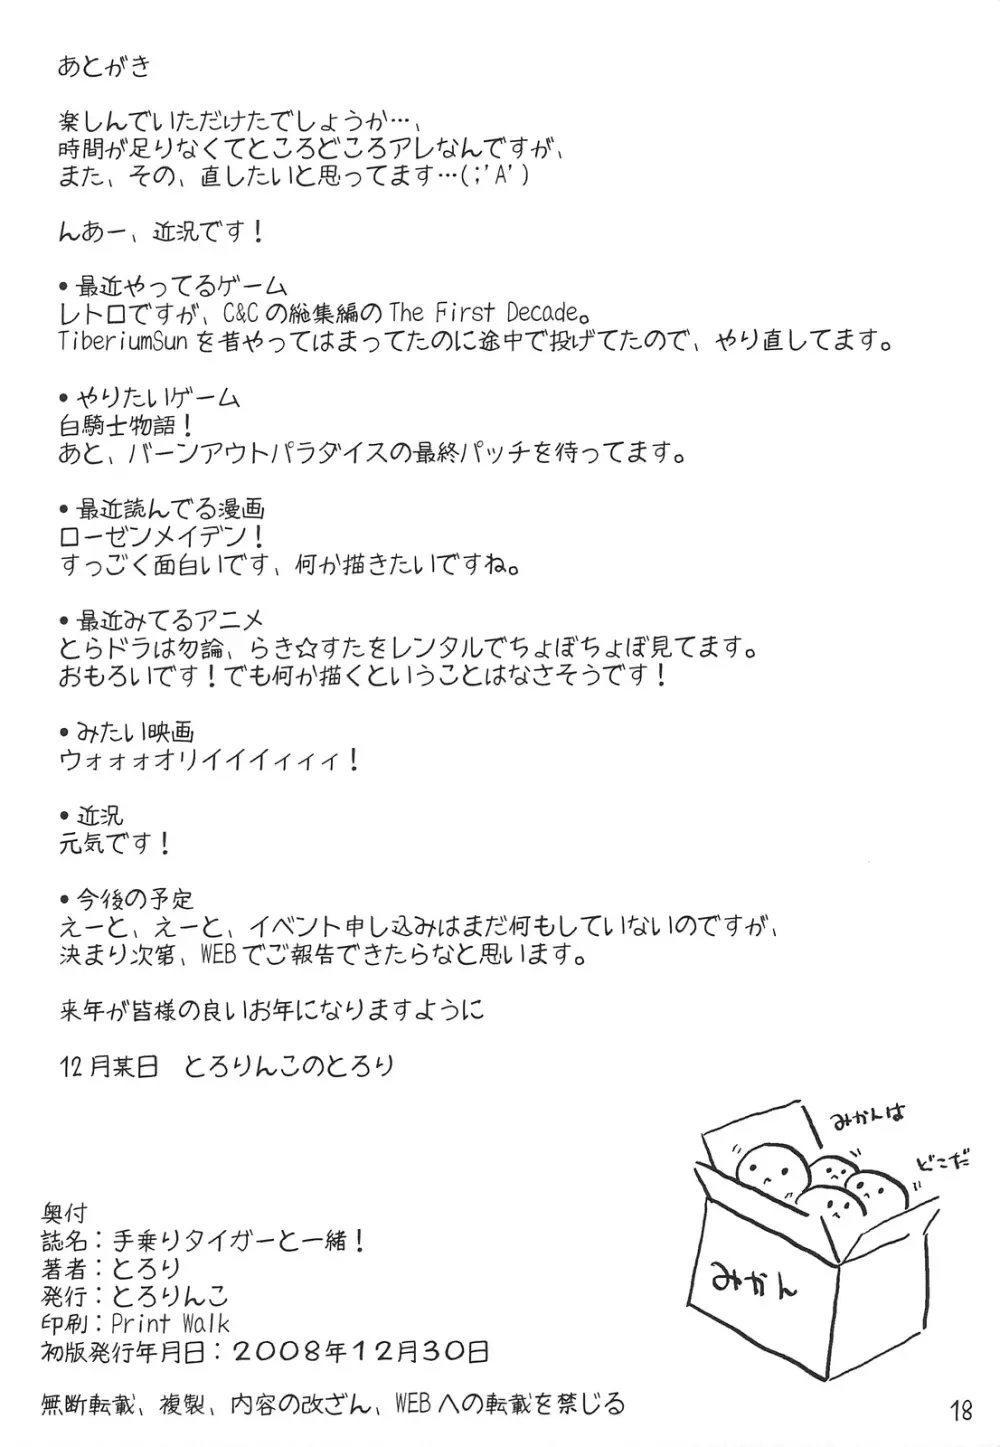 あとがき
楽しんでいただけたでしょうか…、
時間が足りなくてところどころアレなんですが、
また、その、直したいと思ってます…(;'A')
んあー、近況です！
•最近やってるゲーム
レトロですが、C&Cの総集編のThe First Decade。
TiberiumSunを昔やってはまってたのに途中で投げてたので、やり直してます。
•やりたいゲーム
白騎士物語！
あと、バーンアウトパラダイスの最終パッチを待ってます。
•最近読んでる漫画
ローゼンメイデン！
すっごく面白いです、何か描きたいですね。
•最近みてるアニメ
とらドラは勿論、らき☆すたをレンタルでちょぼちょぼ見てます。
おもろいです！でも何か描くということはなさそうです！
•みたい映画
ウォォォオリイイイィィィ！
•近況
元気です！
•今後の予定
えーと、えーと、イベント申し込みはまだ何もしていないのですが、
決まり次第、WEBでご報告できたらなと思います。
来年が皆様の良いお年になりますように
12月某日　とろりんこのとろり
みかんは
どこだ
みかん
奥付
誌名：手乗りタイガーと一緒！
著者：とろり
発行：とろりんこ
印刷：Print Walk
初版発行年月日：２００８年１２月３０日
無断転載、複製、内容の改ざん、WEBへの転載を禁じる
18